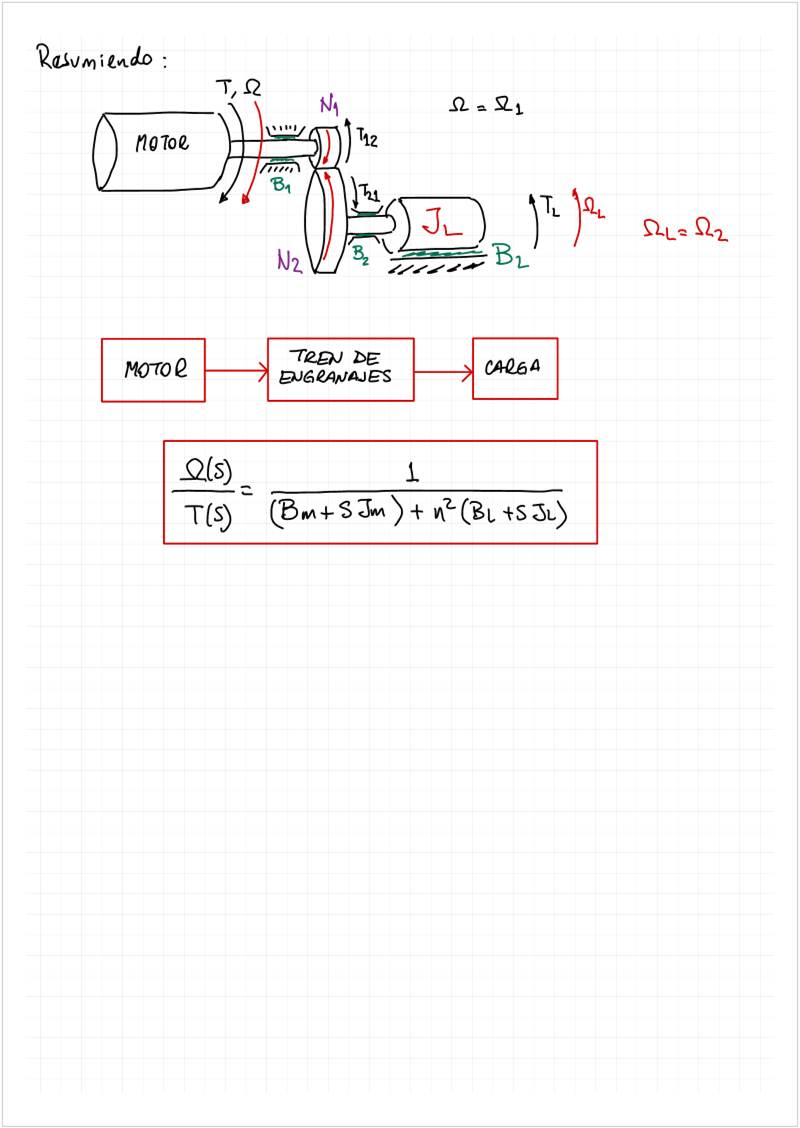 Resumiendo:
T, Ω
N1
Ω = Ω1
MOTOR
T12
B1
T21
JL
TL
ΩL
ΩL = Ω2
N2
B2
BL
MOTOR
TREN DE
ENGRANAJES
CARGA
Ω(s)/T(s) = 1/((Bm + S Jm) + n²(BL + S JL))